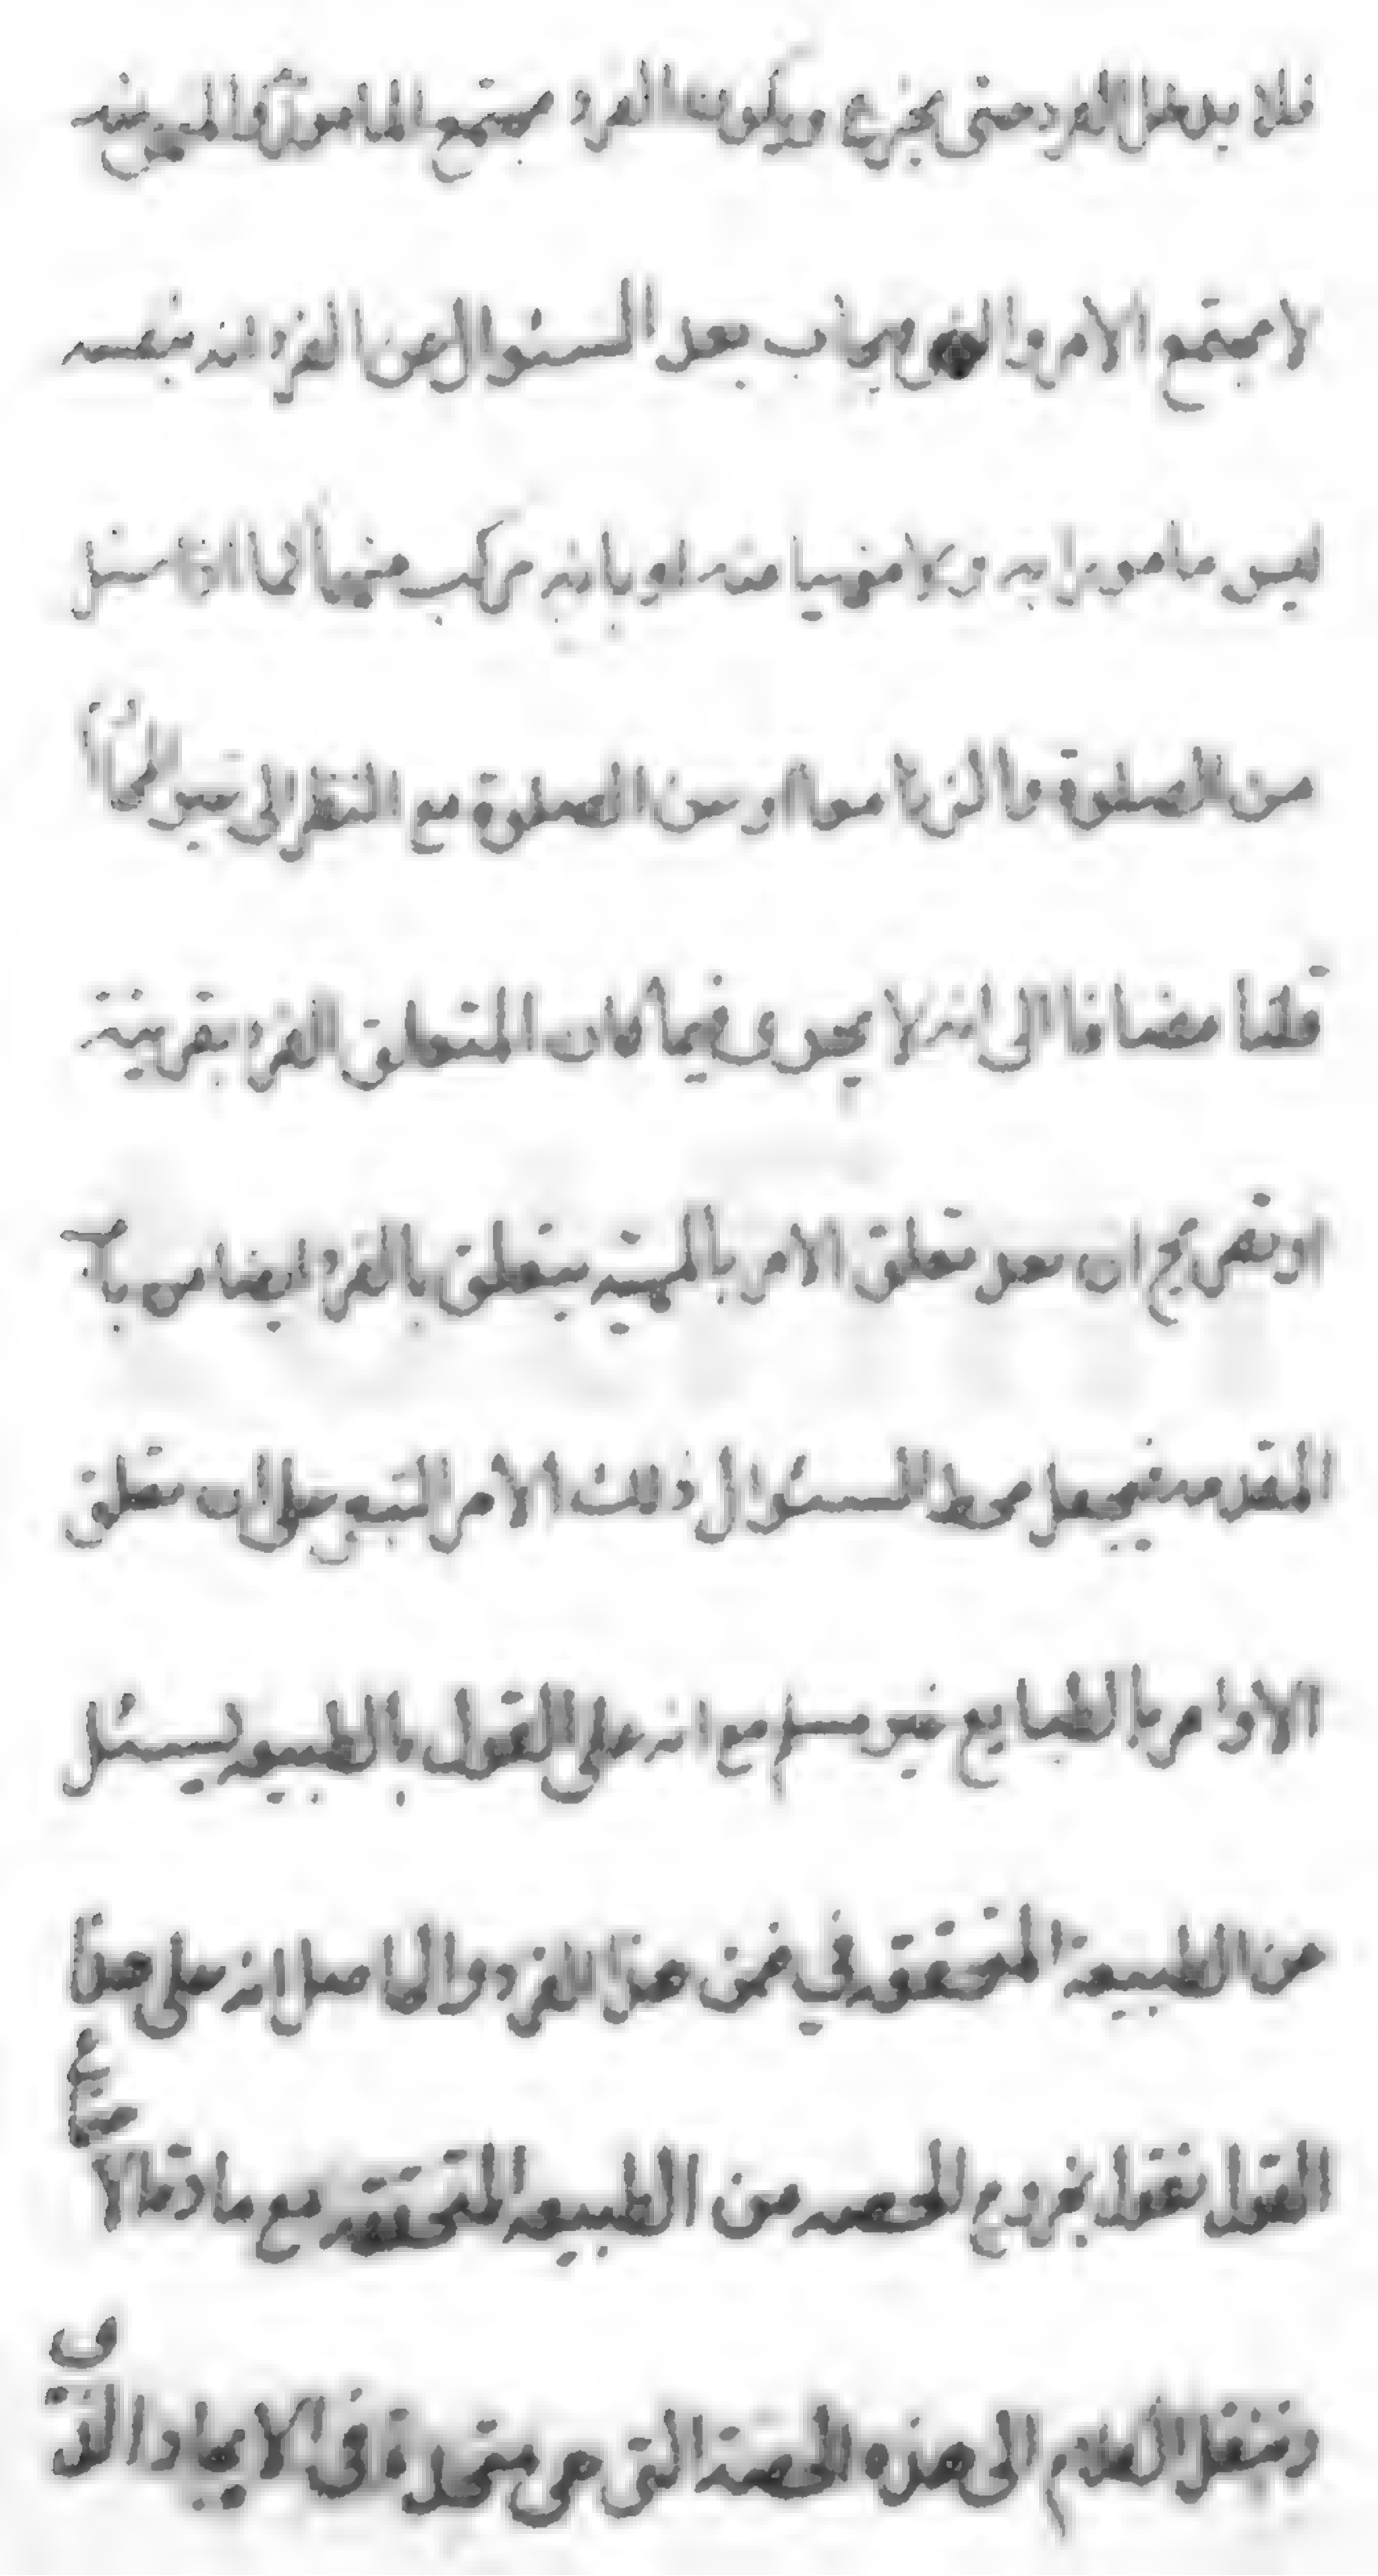 فلا يدخل الفرد حتى يخرج ويكون الفرد مجتمع المامور و المنهي عنه
لا مجتمع الامر والنهي يجاب بعد السئوال عن الفرد انه بنفسه
ليس مامورا به ولا منهيا عنه او بانه مركب منهما كما اذا سئل
من الصلوة والزنا معا او عن الصلوة مع النظر الى غير
قلنا مضافا الى انه لا يجرى فيما كان المتعلق الفرد بقرينة
او نقول ح ان بعد تعلق الامر بالمهية يتعلق بالفرد ايضا من باب
المقدمة فيجعل محط السئوال ذلك الامر التبعي على ان تعلق
الاوامر بالطبايع غير مسلم مع انه على القول بالطبيعه يسئل
عن الطبيعة المتحققه في ضمن هذا الفرد والحاصل انه على هذا
القول نقول بخروج الحصه من الطبيعه المتحققه مع مادة الا
وننقل الكلام الى هذه الحصة التى هي متحدة فى الايجاد الذى